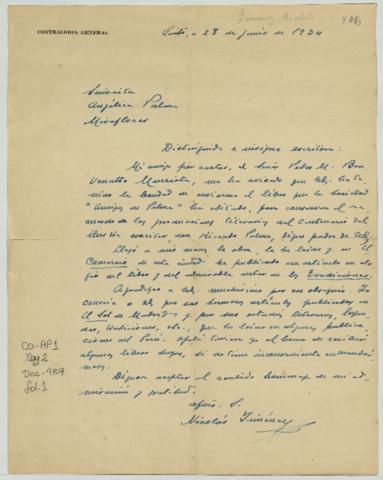 CONTRALORIA GENERAL
486
Quito, a 28 de junio de 1934
Señorita
Angélica Palma
Miraflores
Distinguida e insigne escritora:
Mi amigo por cartas, el Señor Pedro M. Ben
venutto Murrieta, me ha avisado que Ud. ha te-
nido la bondad de enviarme el libro que la Sociedad
"Amigos de Palma" ha editado, para conservar el re-
cuerdo de las producciones literarias del centenario del
ilustre escritor, don Ricardo Palma, digno padre de Ud.
Llegó a mis manos la obra, la he leído y en El
Comercio de esta ciudad he publicado un artículo en elo-
gio del libro y del admirable autor de las Tradiciones.
Agradezco a Ud. muchísimo por su obsequio. La
conocía a Ud. por sus hermosos artículos publicados en
El Sol de Madrid y por sus estudios literarios,
tradiciones, etc., que he leído en algunas publica-
ciones del Perú.
algunos libros suyos, si no tiene inconveniente en
Dígnese aceptar el rendido homenaje de mi ad-
miración y gratitud.
Nicolás Jiménez
CO-AP1
Leg 2
Doc. 459
fol. 1